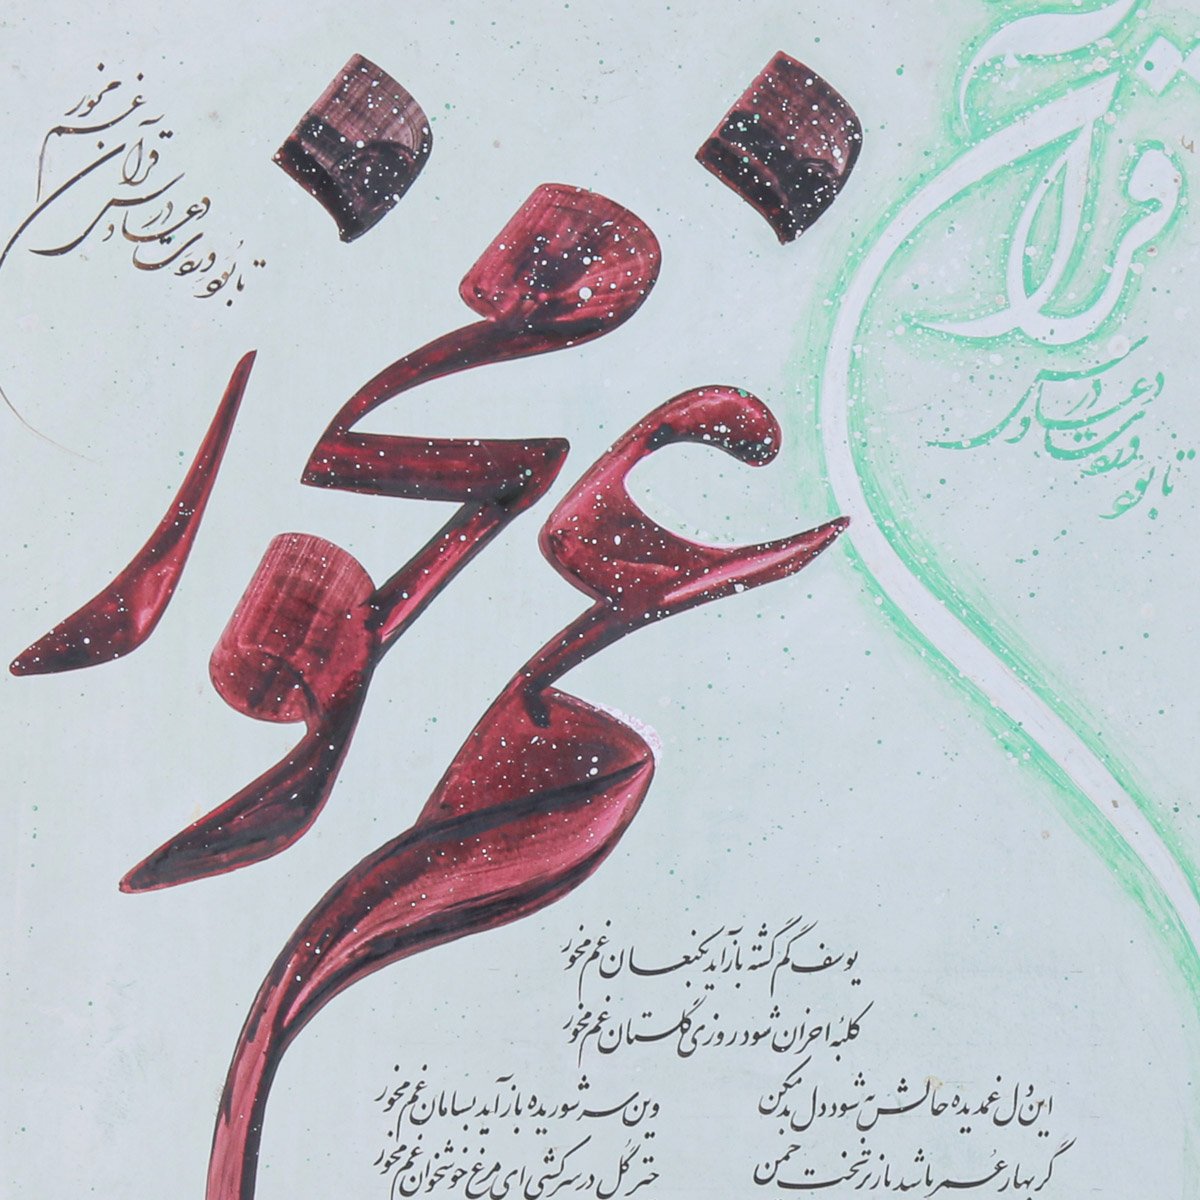 قرآن
تا بود وردت دعا و درس
غم مخور
تا بود وردت دعا و درس
قرآن
غم مخور
یوسف گم گشته باز آید بکنعان غم مخور
کلبهٔ احزان شود روزی گلستان غم مخور
این دل غمدیده حالش به شود دل بد مکن وین سر شوریده باز آید بسامان غم مخور
گر بهار عمر باشد باز بر تخت چمن چتر گل در سر کشی ای مرغ خوشخوان غم مخور